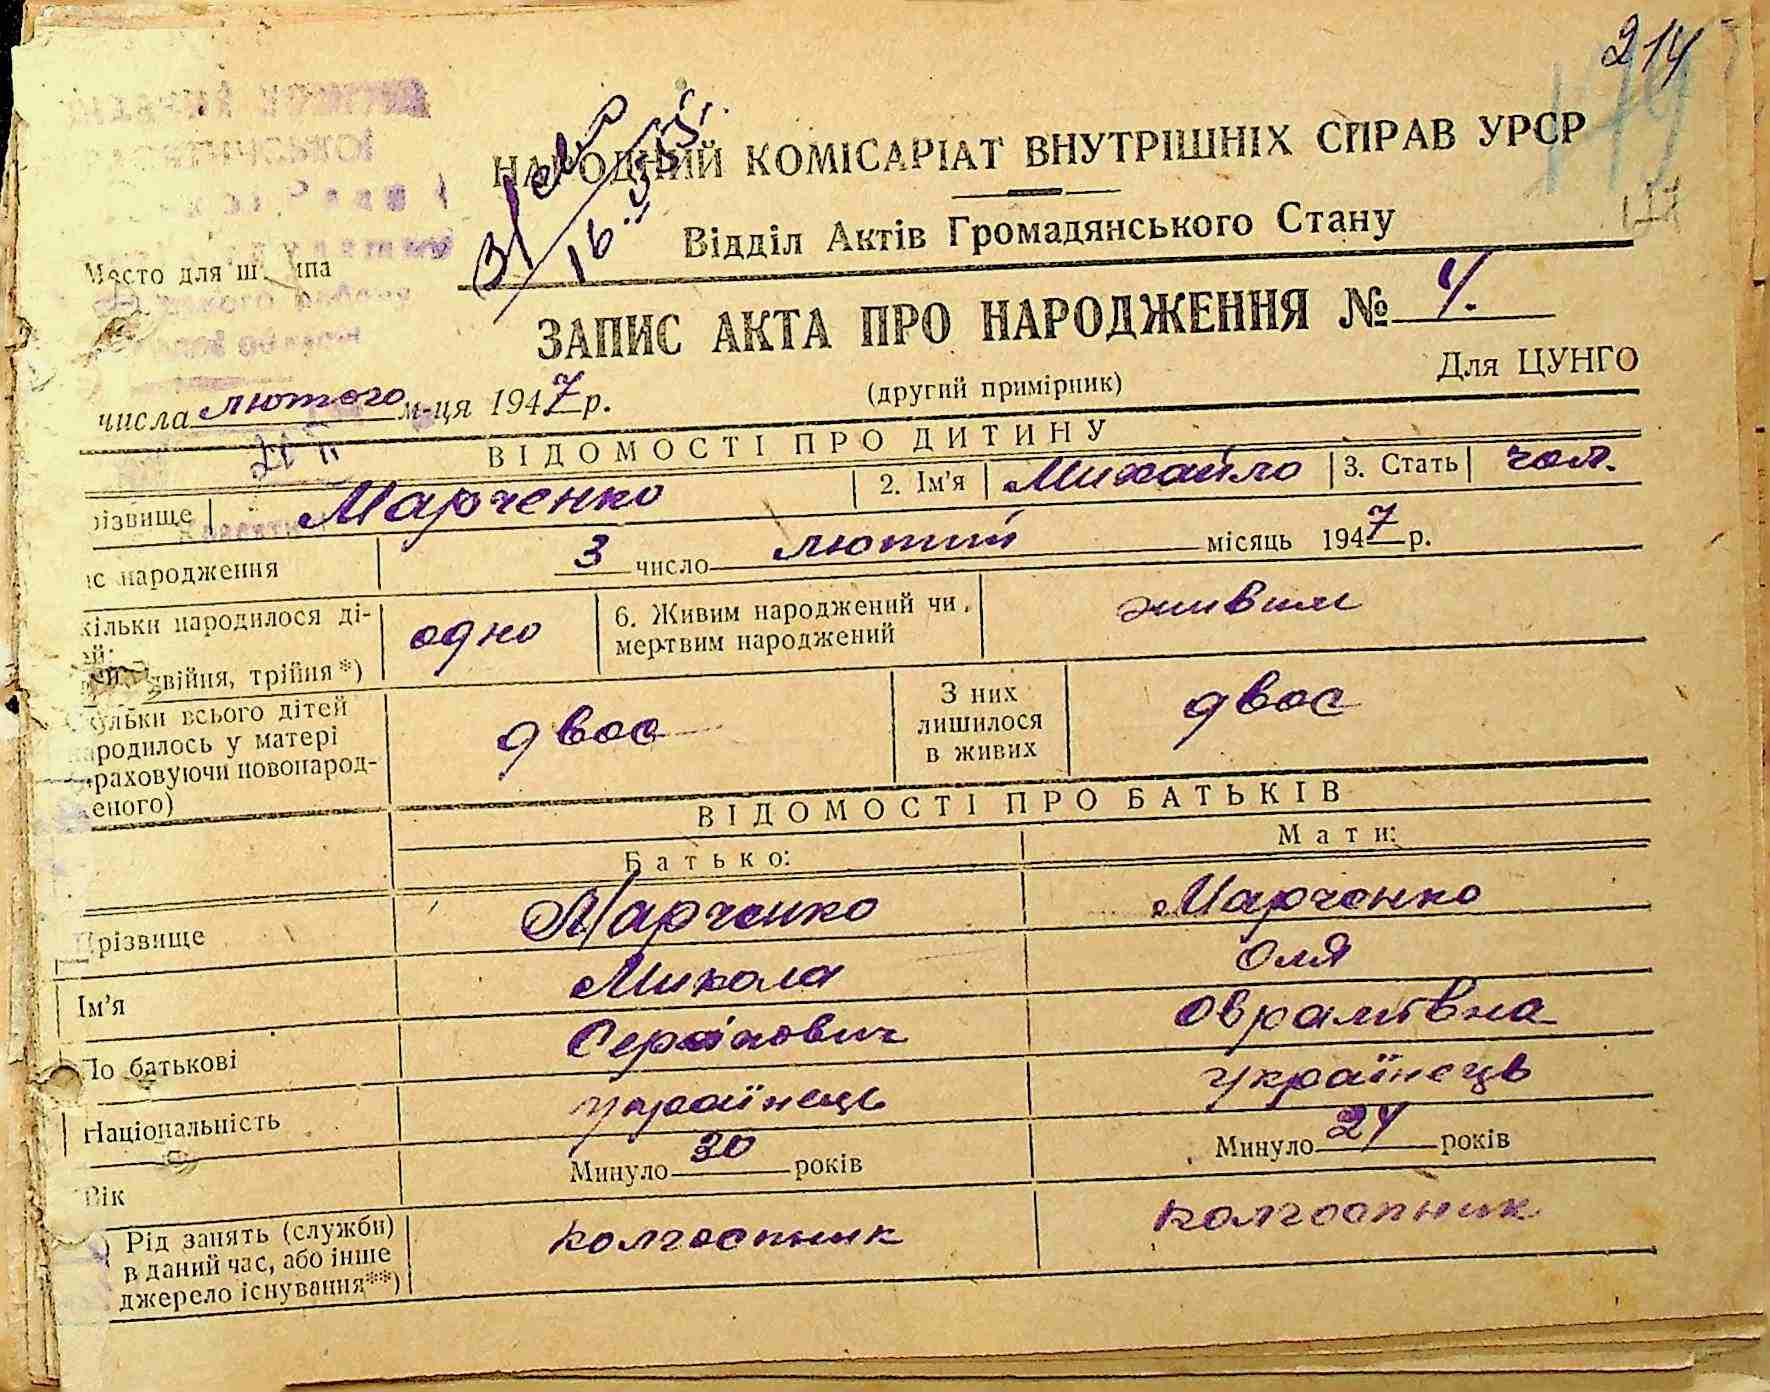 214
179
117
31
16
НАРОДНИЙ КОМІСАРІАТ ВНУТРІШНІХ СПРАВ УРСР
Відділ Актів Громадянського Стану
Место для ш па
ЗАПИС АКТА ПРО НАРОДЖЕННЯ № 4.
(другий примірник)
Для ЦУНГО
числа лютого м-ця 1947 р.
ВІДОМОСТІ ПРО ДИТИНУ
різвище Марченко 2. Ім'я Михайло 3. Стать чол.
ас народження 3 число лютий місяць 1947 р.
кільки народилося ді-
ей: одно 6. Живим народжений чи мертвим народжений живим
двійня, трійня *)
Скульки всього дітей
народилось у матері двоє З них лишилося в живих двоє
враховуючи новонарод-
женого)
ВІДОМОСТІ ПРО БАТЬКІВ
Батько: Мати:
Прізвище Марченко Марченко
Ім'я Микола Оля
По батькові Оврамівна
Національність українець українець
Вік Минуло 30 років Минуло 24 років
Рід занять (служби)
в даний час, або інше
джерело існування**) колгоспник колгоспник